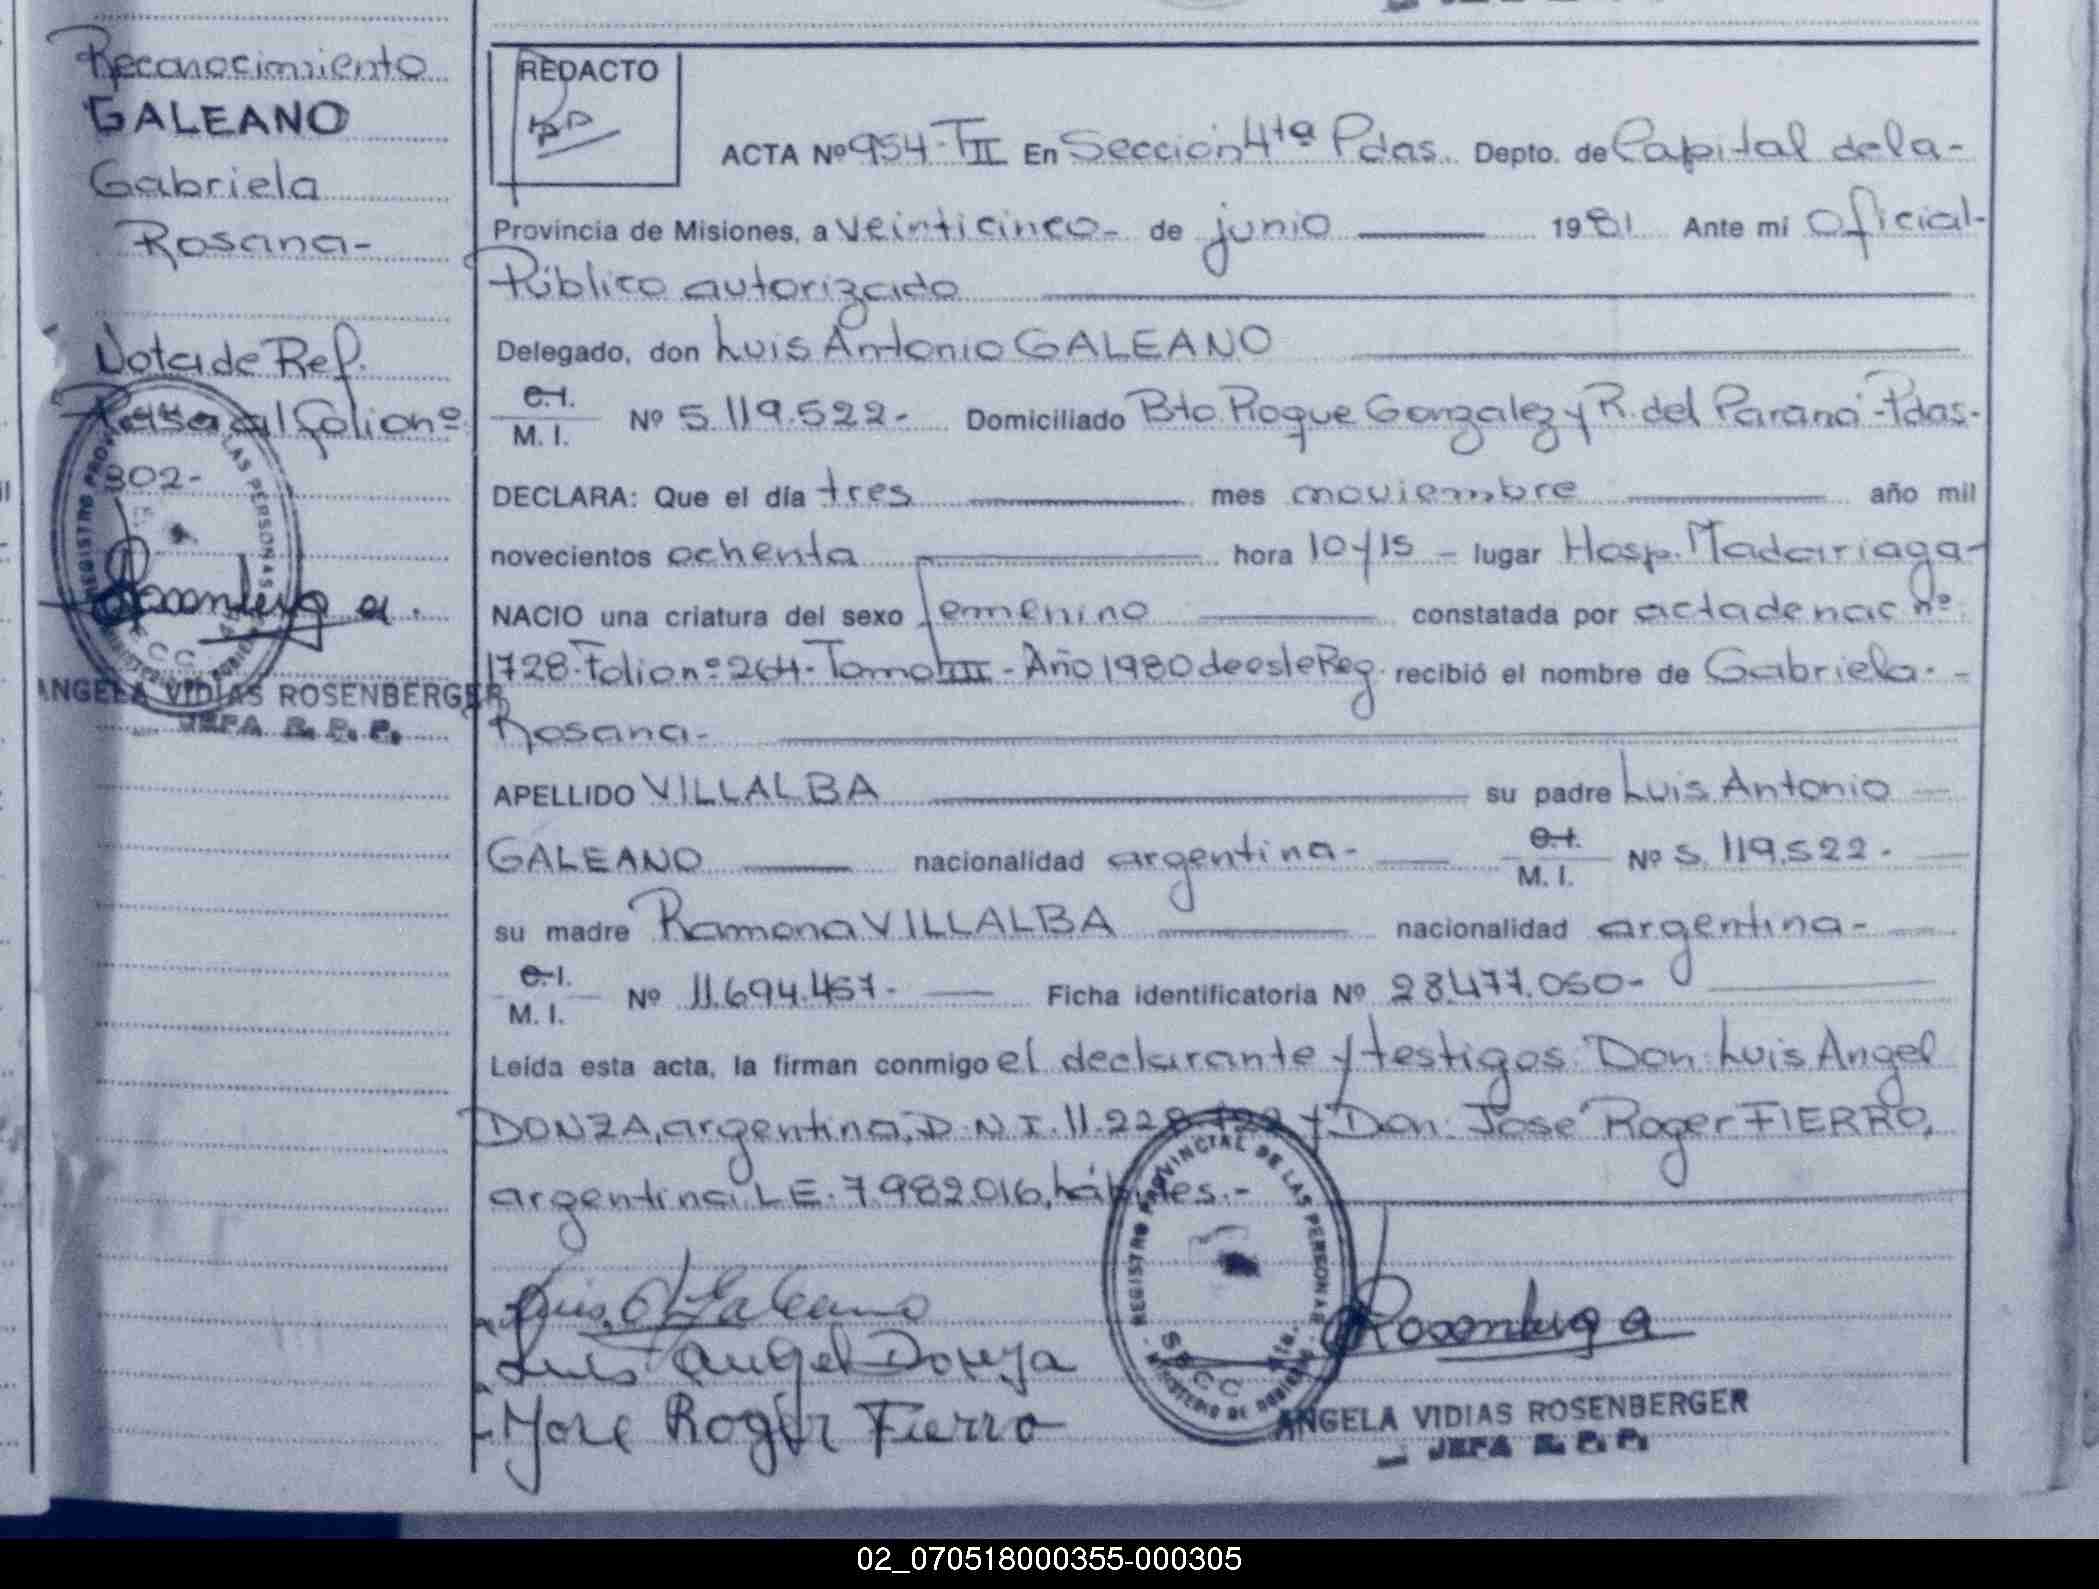 Reconocimiento
GALEANO
Gabriela
Rosana-
Nota de Ref.
Pasa al folio nº
302-
ANGELA VIDIAS ROSENBERGER
JEFA R. P. P.
REDACTO
ACTA Nº 954-TII En Sección 4ta Pdas. Depto. de Capital de la-
Provincia de Misiones, a veinticinco- de junio 1981 Ante mí Oficial-
Público autorizado
Delegado, don Luis Antonio GALEANO
C.I.
M. I. Nº 5.119.522- Domiciliado Bto Roque Gonzalez y R. del Paraná-Pdas-
DECLARA: Que el día tres mes noviembre año mil
novecientos ochenta hora 10y15 - lugar Hosp. Madariaga-
NACIO una criatura del sexo femenino constatada por acta de nac nº
1728-Folio nº 264-Tomo III-Año 1980 de este Reg. recibió el nombre de Gabriela-
Rosana-
APELLIDO VILLALBA su padre Luis Antonio
GALEANO nacionalidad argentina- C.I.
M. I. Nº 5.119.522-
su madre Ramona VILLALBA nacionalidad argentina-
C.I.
M. I. Nº 11.694.457- Ficha identificatoria Nº 28.477.050-
Leída esta acta, la firman conmigo el declarante y testigos: Don Luis Angel
DONZA, argentina, D.N.I. 11.228. y Don: José Roger FIERRO,
argentina L.E. 7.982.016, hábiles.-
Luis A Galeano
Luis Angel Donza
José Roger Fierro
REGISTRO PROVINCIAL DE LAS PERSONAS
Rosenberg a
ANGELA VIDIAS ROSENBERGER
JEFA R. P. P.
02_070518000355-000305